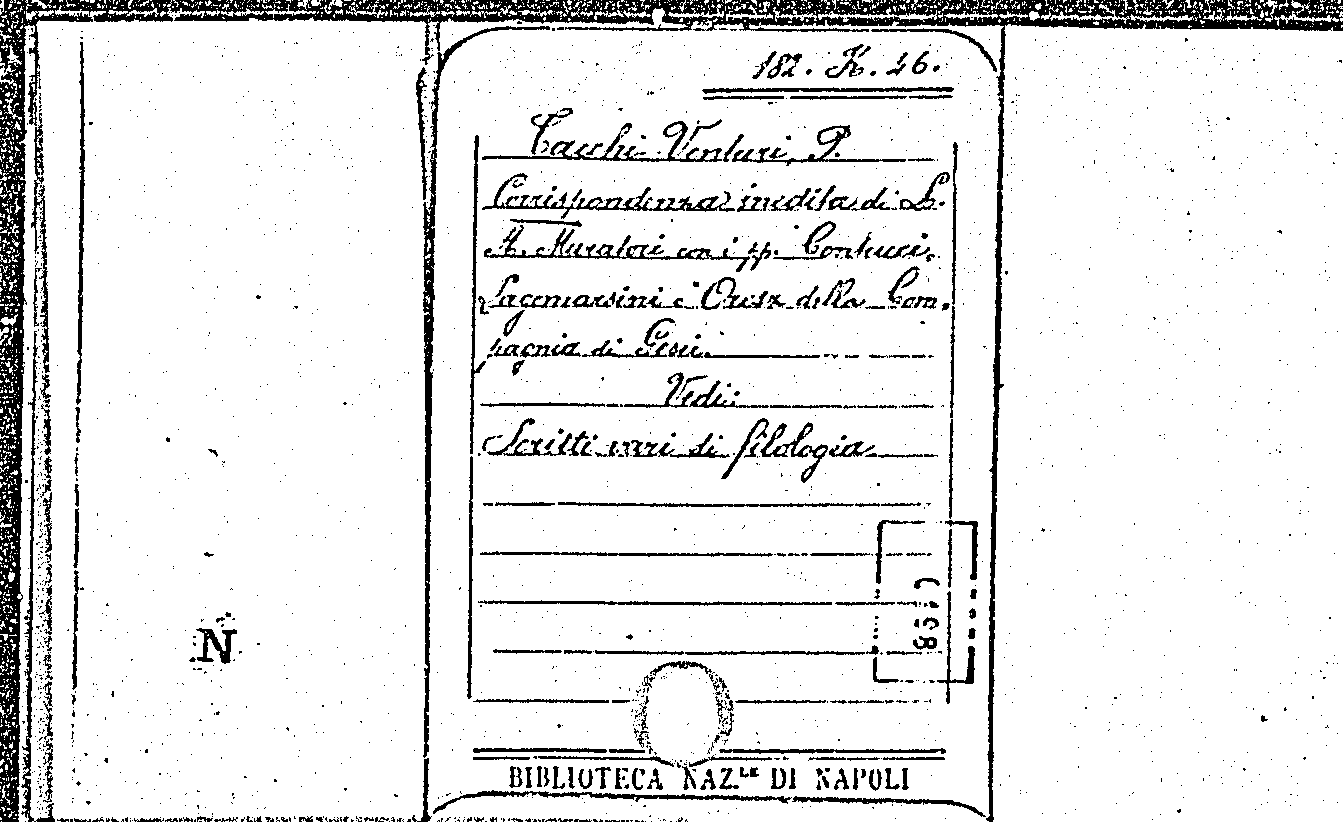 182. K. 46.
Tacchi Venturi, P.
Corrispondenza inedita di L.
A. Muratori con i pp. Contucci,
Lagomarsini e Oresz della Com-
pagnia di Gesù.
Vedi:
Scritti vari di filologia
N
BIBLIOTECA NAZ.LE DI NAPOLI